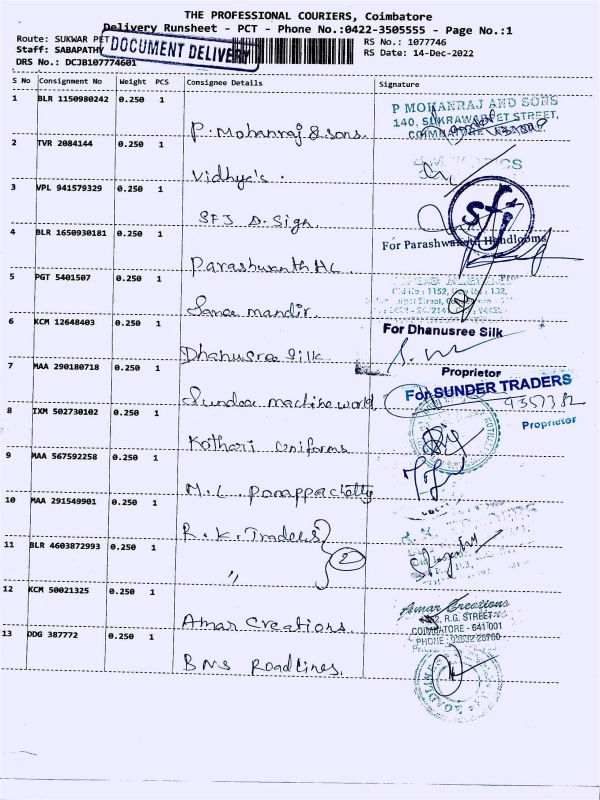 THE PROFESSIONAL COURIERS, Coimbatore
Delivery Runsheet - PCT - Phone No.:0422-3505555 - Page No.:1
Route: SUKWAR PET
DOCUMENT DELIVERY
RS No.: 1077746
Staff: SABAPATHY
RS Date: 14-Dec-2022
DRS No.: DCJB107774601
S No Consignment No Weight PCS Consignee Details Signature
1 BLR 1150980242 0.250 1
P. Mohanraj & sons.
P MOHANRAJ AND SONS
140, SUKRAWARPET STREET,
2 TVR 2084144 0.250 1
Vidhya's.
3 VPL 941579329 0.250 1
SFJ D. Sign
sfj
4 BLR 1650930181 0.250 1
Parashwanth HC
For Parashwanath Handlooms
5 PGT 5401507 0.250 1
mandir.
6 KCM 12648403 0.250 1
Dhanusree Silk
For Dhanusree Silk
Proprietor
7 MAA 290180718 0.250 1
Sunder machine world
For SUNDER TRADERS
Proprietor
8 IXM 502730102 0.250 1
Kothari Uniforms
9 MAA 567592258 0.250 1
M. L
10 MAA 291549901 0.250 1
R. K. Traders
2
11 BLR 4603872993 0.250 1
"
12 KCM 50021325 0.250 1
Amar Creations.
Amar Creations
R.G. STREET
COIMBATORE - 641 001
13 DDG 387772 0.250 1
BMS Roadlines.